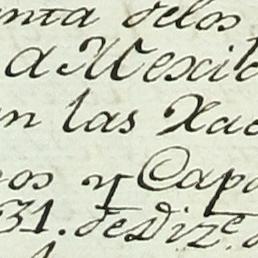 enta delos
d Mexico
en las Xac
nos y Capa
31. de Diz.e